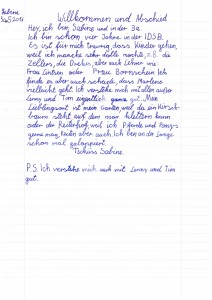 Sabine
Willkommen und Abschied
Hey, ich bin Sabine und in der 5a.
Ich bin schon vier Jahre in der IDSB.
Es ist für mich traurig, dass Kinder gehen,
weil ich manche sehr dolle mochte, z.B. die
Zellers, die Drehus, aber auch Lehrer wie
Frau Lintzen oder Frau Bornschein. Ich
finde es aber auch schade, dass Marlene
vielleicht geht. Ich verstehe mich mit allen außer
Lenny und Tim eigentlich ganz gut. Mein
Lieblingsort ist mein Garten, weil da ein Kirsch-
baum steht auf dem man klettern kann
oder der Reiterhof, weil ich Pferde und Ponys
gerne mag. Reiten aber auch Ich bin an der Longe
schon mal galoppiert.
Tschüss Sabine.
P.S. Ich verstehe mich auch mit Lenny und Tim
gut.